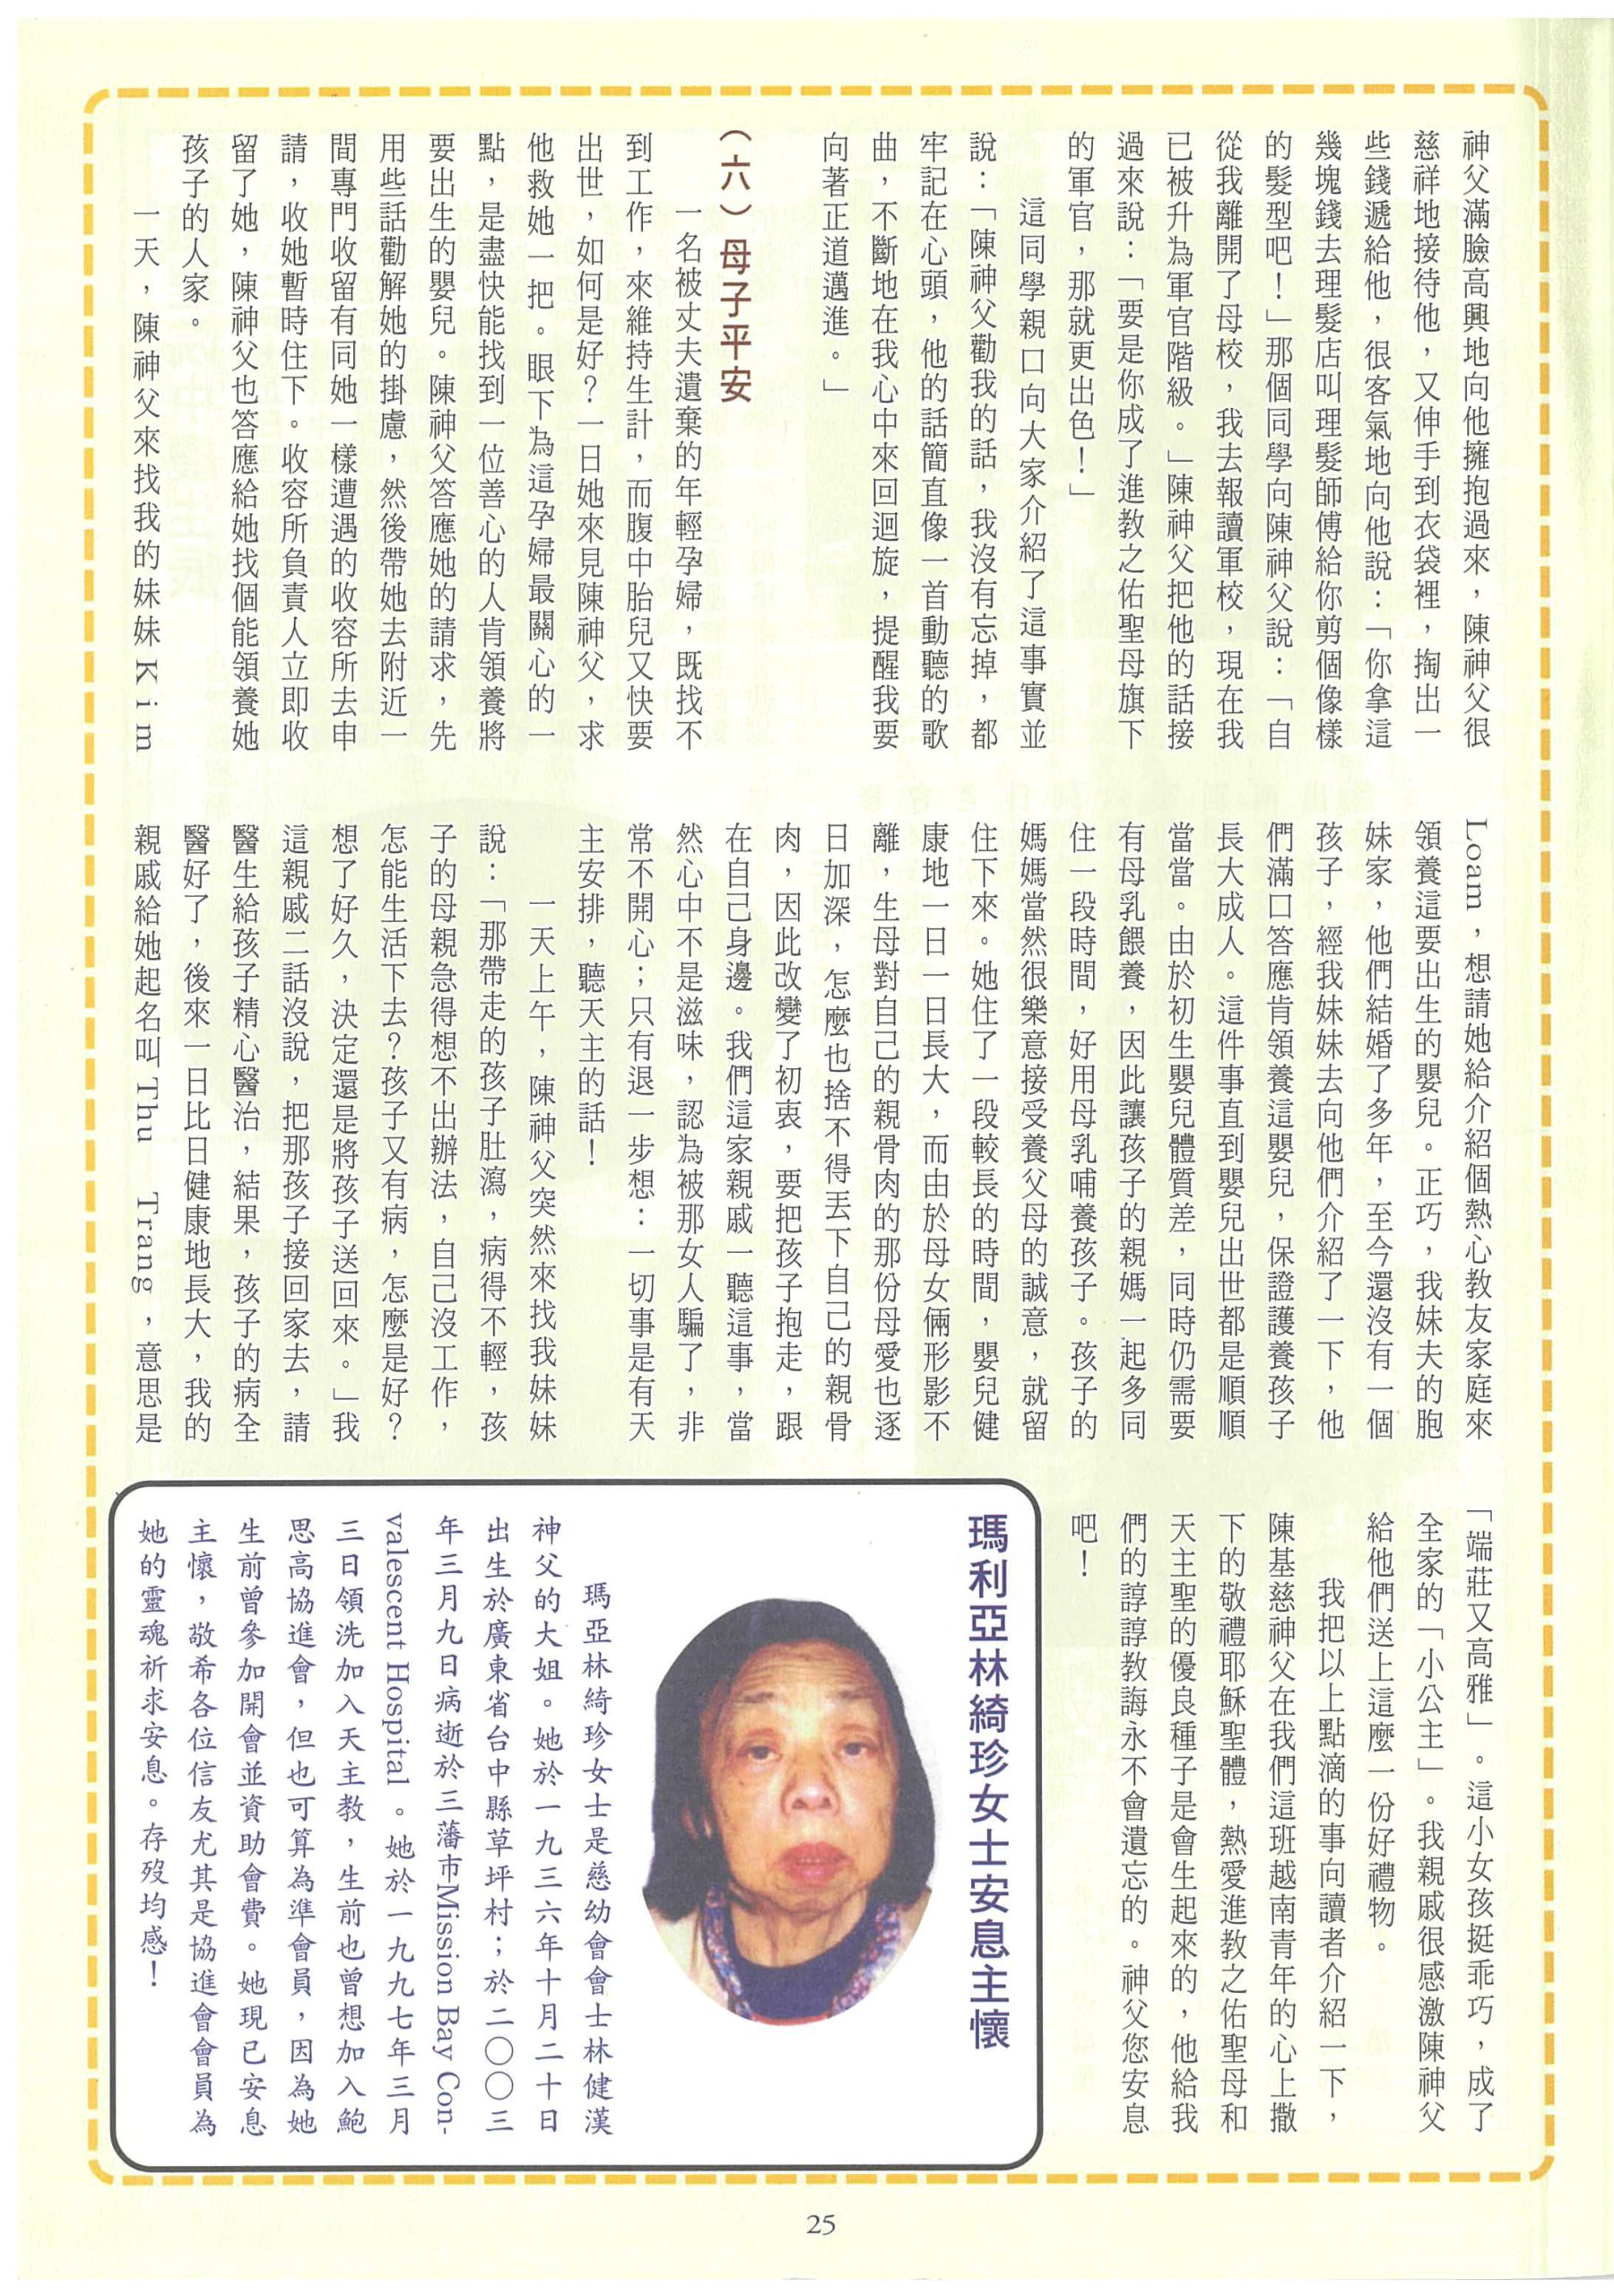 神父滿臉高興地向他擁抱過來，陳神父很
慈祥地接待他，又伸手到衣袋裡，掏出一
些錢遞給他，很客氣地向他說：「你拿這
幾塊錢去理髮店叫理髮師傅給你剪個像樣
的髮型吧！」那個同學向陳神父說：「自
從我離開了母校，我去報讀軍校，現在我
已被升為軍官階級。」陳神父把他的話接
過來說：「要是你成了進教之佑聖母旗下
的軍官，那就更出色！」
這同學親口向大家介紹了這事實並
說：「陳神父勸我的話，我沒有忘掉，都
牢記在心頭，他的話簡直像一首動聽的歌
曲，不斷地在我心中來回迴旋，提醒我要
向著正道邁進。」
（六）母子平安
一名被丈夫遺棄的年輕孕婦，既找不
到工作，來維持生計，而腹中胎兒又快要
出世，如何是好？一日她來見陳神父，求
他救她一把。眼下為這孕婦最關心的一
點，是盡快能找到一位善心的人肯領養將
要出生的嬰兒。陳神父答應她的請求，先
用些話勸解她的掛慮，然後帶她去附近一
間專門收留有同她一樣遭遇的收容所去申
請，收她暫時住下。收容所負責人立即收
留了她，陳神父也答應給她找個能領養她
孩子的人家。
一天，陳神父來找我的妹妹Kim
Loam，想請她給介紹個熱心教友家庭來
領養這要出生的嬰兒。正巧，我妹夫的胞
妹家，他們結婚了多年，至今還沒有一個
孩子，經我妹妹去向他們介紹了一下，他
們滿口答應肯領養這嬰兒，保證護養孩子
長大成人。這件事直到嬰兒出世都是順順
當當。由於初生嬰兒體質差，同時仍需要
有母乳餵養，因此讓孩子的親媽一起多同
住一段時間，好用母乳哺養孩子。孩子的
媽媽當然很樂意接受養父母的誠意，就留
住下來。她住了一段較長的時間，嬰兒健
康地一日一日長大，而由於母女倆形影不
離，生母對自己的親骨肉的那份母愛也逐
日加深，怎麼也捨不得丟下自己的親骨
肉，因此改變了初衷，要把孩子抱走，跟
在自己身邊。我們這家親戚一聽這事，當
然心中不是滋味，認為被那女人騙了，非
常不開心；只有退一步想：一切事是有天
主安排，聽天主的話！
一天上午，陳神父突然來找我妹妹
說：「那帶走的孩子肚瀉，病得不輕，孩
子的母親急得想不出辦法，自己沒工作，
怎能生活下去？孩子又有病，怎麼是好？
想了好久，決定還是將孩子送回來。」我
這親戚二話沒說，把那孩子接回家去，請
醫生給孩子精心醫治，結果，孩子的病全
醫好了，後來一日比日健康地長大，我的
親戚給她起名叫Thu Trang，意思是
「端莊又高雅」。這小女孩挺乖巧，成了
全家的「小公主」。我親戚很感激陳神父
給他們送上這麼一份好禮物。
我把以上點滴的事向讀者介紹一下，
陳基慈神父在我們這班越南青年的心上撒
下的敬禮耶穌聖體，熱愛進教之佑聖母和
天主聖的優良種子是會生起來的，他給我
們的諄諄教誨永不會遺忘的。神父您安息
吧！
瑪利亞林綺珍女士安息主懷
瑪亞林綺珍女士是慈幼會會士林健漢
神父的大姐。她於一九三六年十月二十日
出生於廣東省台中縣草坪村；於二〇〇三
年三月九日病逝於三藩市Mission Bay Con-
valescent Hospital 。她於一九九七年三月
三日領洗加入天主教，生前也曾想加入鮑
思高協進會，但也可算為準會員，因為她
生前曾參加開會並資助會費。她現已安息
主懷，敬希各位信友尤其是協進會會員為
她的靈魂祈求安息。存歿均感！
25